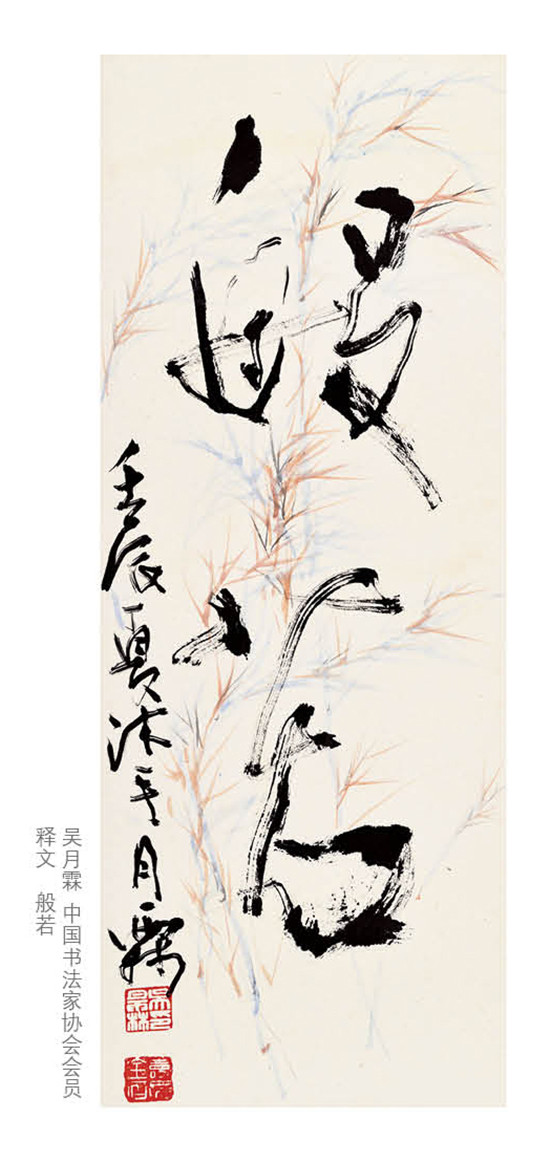 般若
壬辰夏沐手月霖
吴月霖 中国书法家协会会员
释文 般若